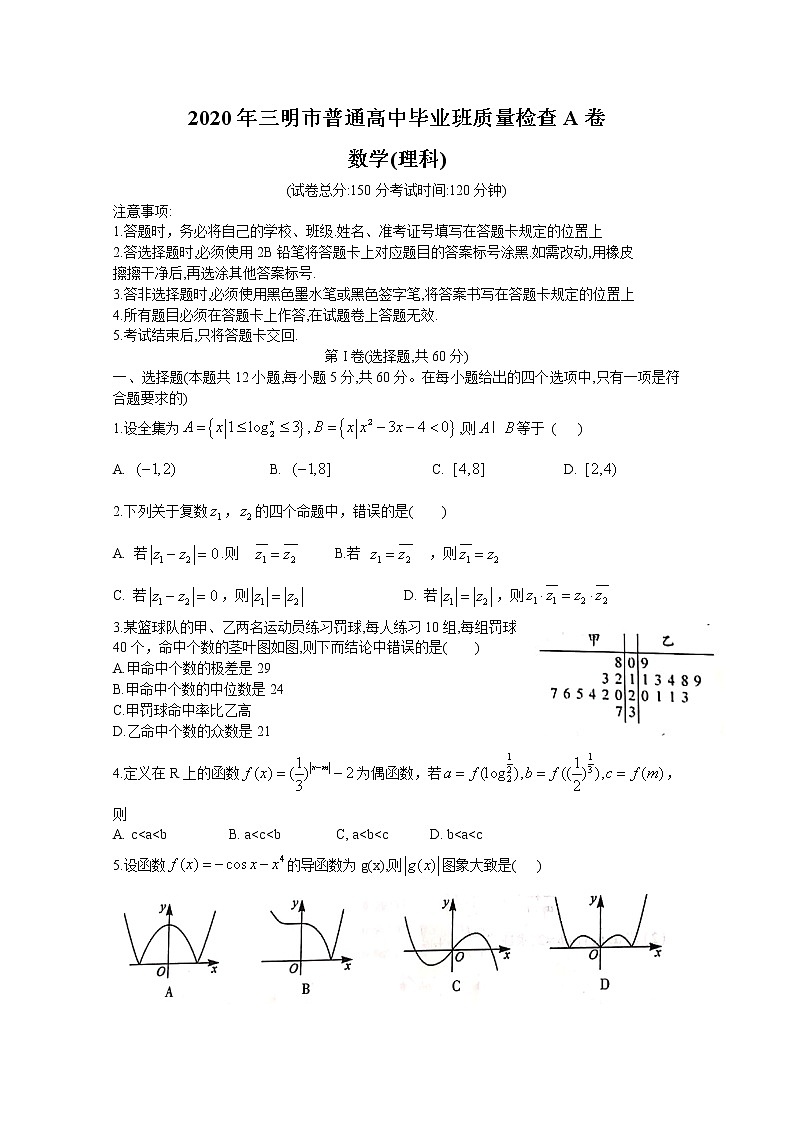 2020年三明市普通高中毕业班质量检查A卷
数学(理科)
(试卷总分:150分考试时间:120分钟)
注意事项:
1.答题时，务必将自己的学校、班级.姓名、准考证号填写在答题卡规定的位置上
2.答选择题时,必须使用2B铅笔将答题卡上对应题目的答案标号涂黑.如需改动,用橡皮
擦擦干净后,再选涂其他答案标号.
3.答非选择题时,必须使用黑色墨水笔或黑色签字笔,将答案书写在答题卡规定的位置上
4.所有题目必须在答题卡上作答,在试题卷上答题无效.
5.考试结束后,只将答题卡交回.
第I卷(选择题,共60分)
一、选择题(本题共12小题,每小题5分,共60分。在每小题给出的四个选项中,只有一项是符
合题要求的)
1.设全集为 A={x|1≤log₂ˣ≤3}, B={x|x²−3x−4<0},则 A I B等于 ( )
A. (−1,2) B. (−1,8] C. [4,8] D. [2,4)
2.下列关于复数z₁，z₂的四个命题中，错误的是( )
A. 若|z₁−z₂|=0.则 z̅₁=z̅₂ B.若 z₁=z̅₂ ，则z̅₁=z₂
C. 若|z₁−z₂|=0，则|z₁|=|z₂| D. 若|z₁|=|z₂|，则z₁·z̅₁=z₂·z̅₂
3.某篮球队的甲、乙两名运动员练习罚球,每人练习10组,每组罚球
40个，命中个数的茎叶图如图,则下而结论中错误的是( )
A.甲命中个数的极差是29
B.甲命中个数的中位数是24
C.甲罚球命中率比乙高
D.乙命中个数的众数是21
甲 乙
8 0 9
3 2 1 1 3 4 8 9
7 6 5 4 2 0 2 0 1 1 3
7 3
4.定义在R上的函数 f(x)=(1/3)^|x−m|−2为偶函数，若a=f(log₂^(1/2)),b=f((1/2)^(1/3)),c=f(m)，
则
A. c<a<b B. a<c<b C, a<b<c D. b<a<c
5.设函数 f(x)=−cos x−x⁴的导函数为g(x),则|g(x)|图象大致是( )
y O x A
y O x B
y O x C
y O x D